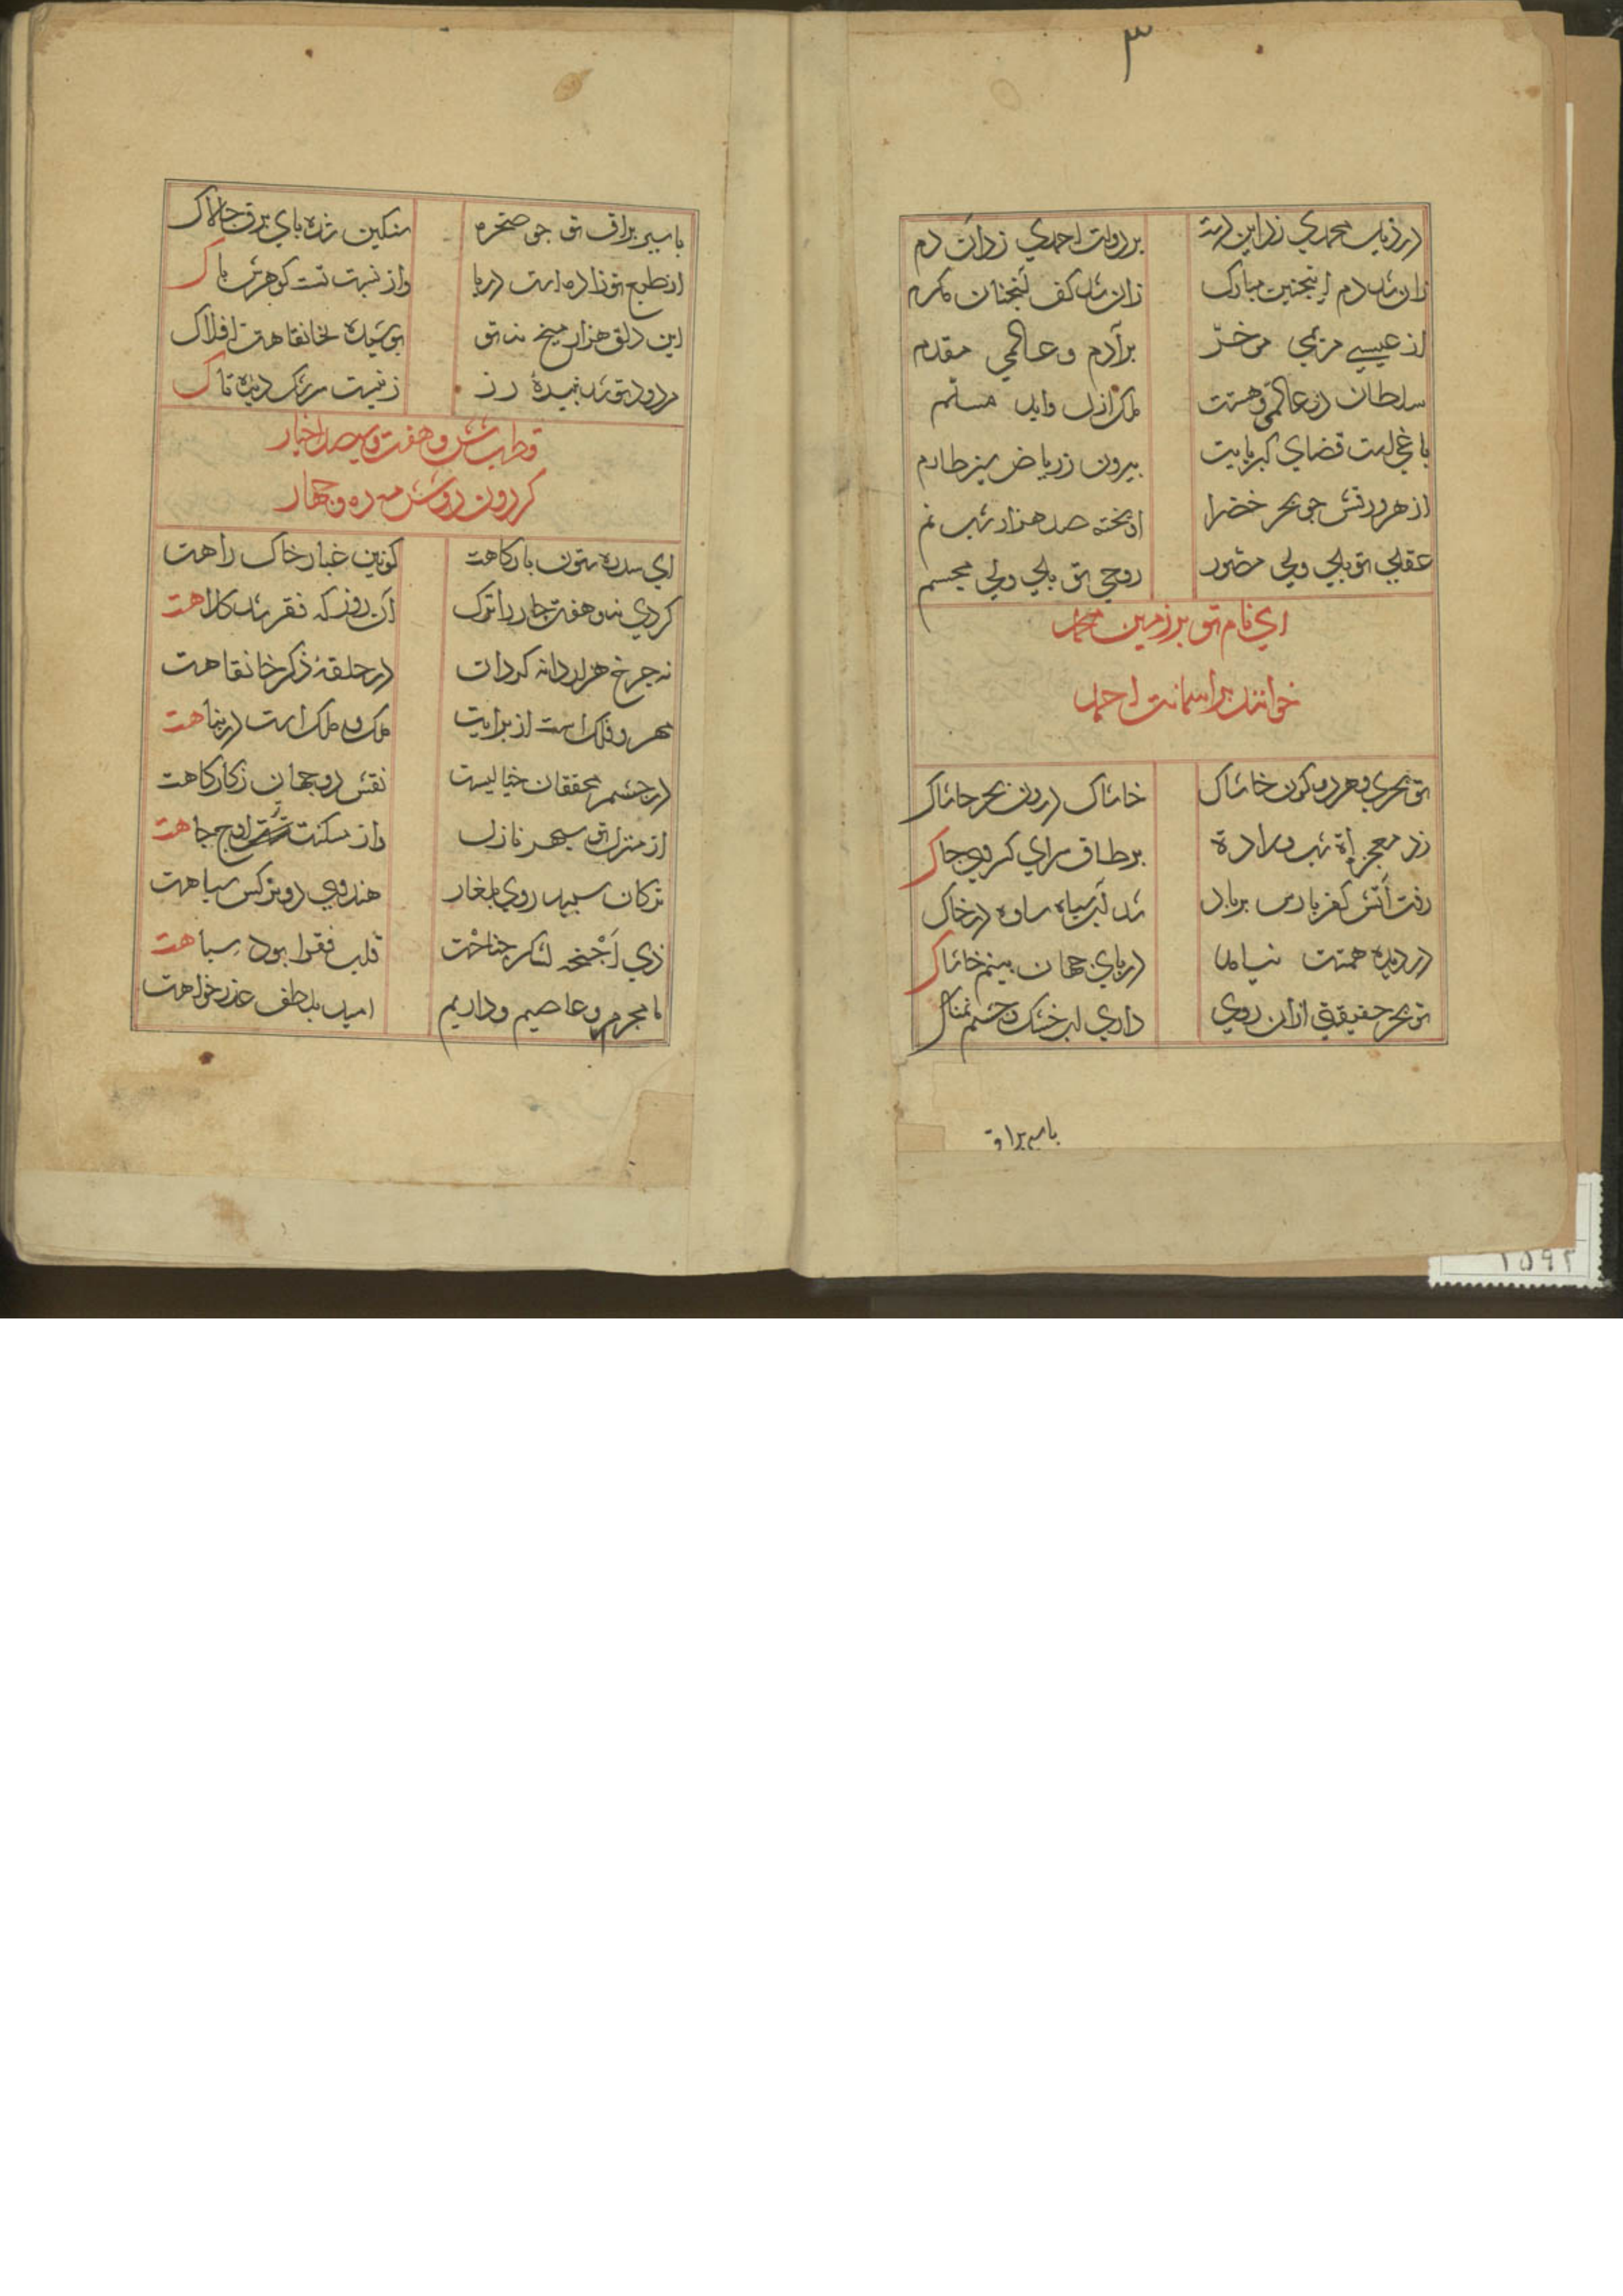 ۳
در زیب محمدی زد این دست بر دولت احمدی زد آن دم
زان شد دم اینچنین مبارک زان شد کف آنچنان مکرم
از عیسی مریمی موخّر بر آدم و عالمی مقدم
سلطان دو عالمی و هستت ملک ازل و ابد مسلم
باغیست فضای کبریایت بیرون ز ریاض سبز طارم
از هر ورقش چو بحر خضرا آویخته صد هزار شب نم
عقلی تو بلی ولی مصور روحی تو بلی ولی مجسم
ای نام تو بر زمین محمد
خوانند بر اسمانت احمد
تو بحری و هر دو کون خاشاک خاشاک درون بحر حاشاک
زد معجزاة شب ولادة بر طاق سرای کسروی چاک
رفت آتش کفر پارس بر باد شد آب سیاه ساوه در خاک
در دیده همتت نیامد دریای جهان بنیم خاشاک
تو بحر حقیقتی ازان روی داری لب خشک و چشم نمناک
با سیر براق
با سیر براق تو چو صخره سنکین شده پای برق چالاک
از طبع تو زاده است دریا واز نسبت تست کوهرش پاک
این دلق هزار میخ نه تو پوشیده بخانقاهت افلاک
مردود تو شد نبیره رز زینست سرشک دیده تاک
قطب شش و هفت و سیصد اخیار
کردون دو شش مه ده و چهار
ای سدره ستون بارکاهت کونین غبار خاک راهت
کردی نه و هفت و چار را ترک آن روز که فقر شد کلاهت
نه چرخ هزار دانه کردان در حلقهٔ ذکر خانقاهت
مهر و فلک است از برایت ملک و ملک است در پناهت
در چشم محققان خیالیست نقش دو جهان ز کارکاهت
از منزل تو سپهر نازل واز مسکنت اوج جاهت
ترکان سپید روی بلغار هندوی دو نرکس سیاهت
ذی اَجْنحه لشکر جناحت قلب فقرا بود سپاهت
ما مجرم و عاصیم و داریم امید بلطف عذر خواهت
۲۵۹۲